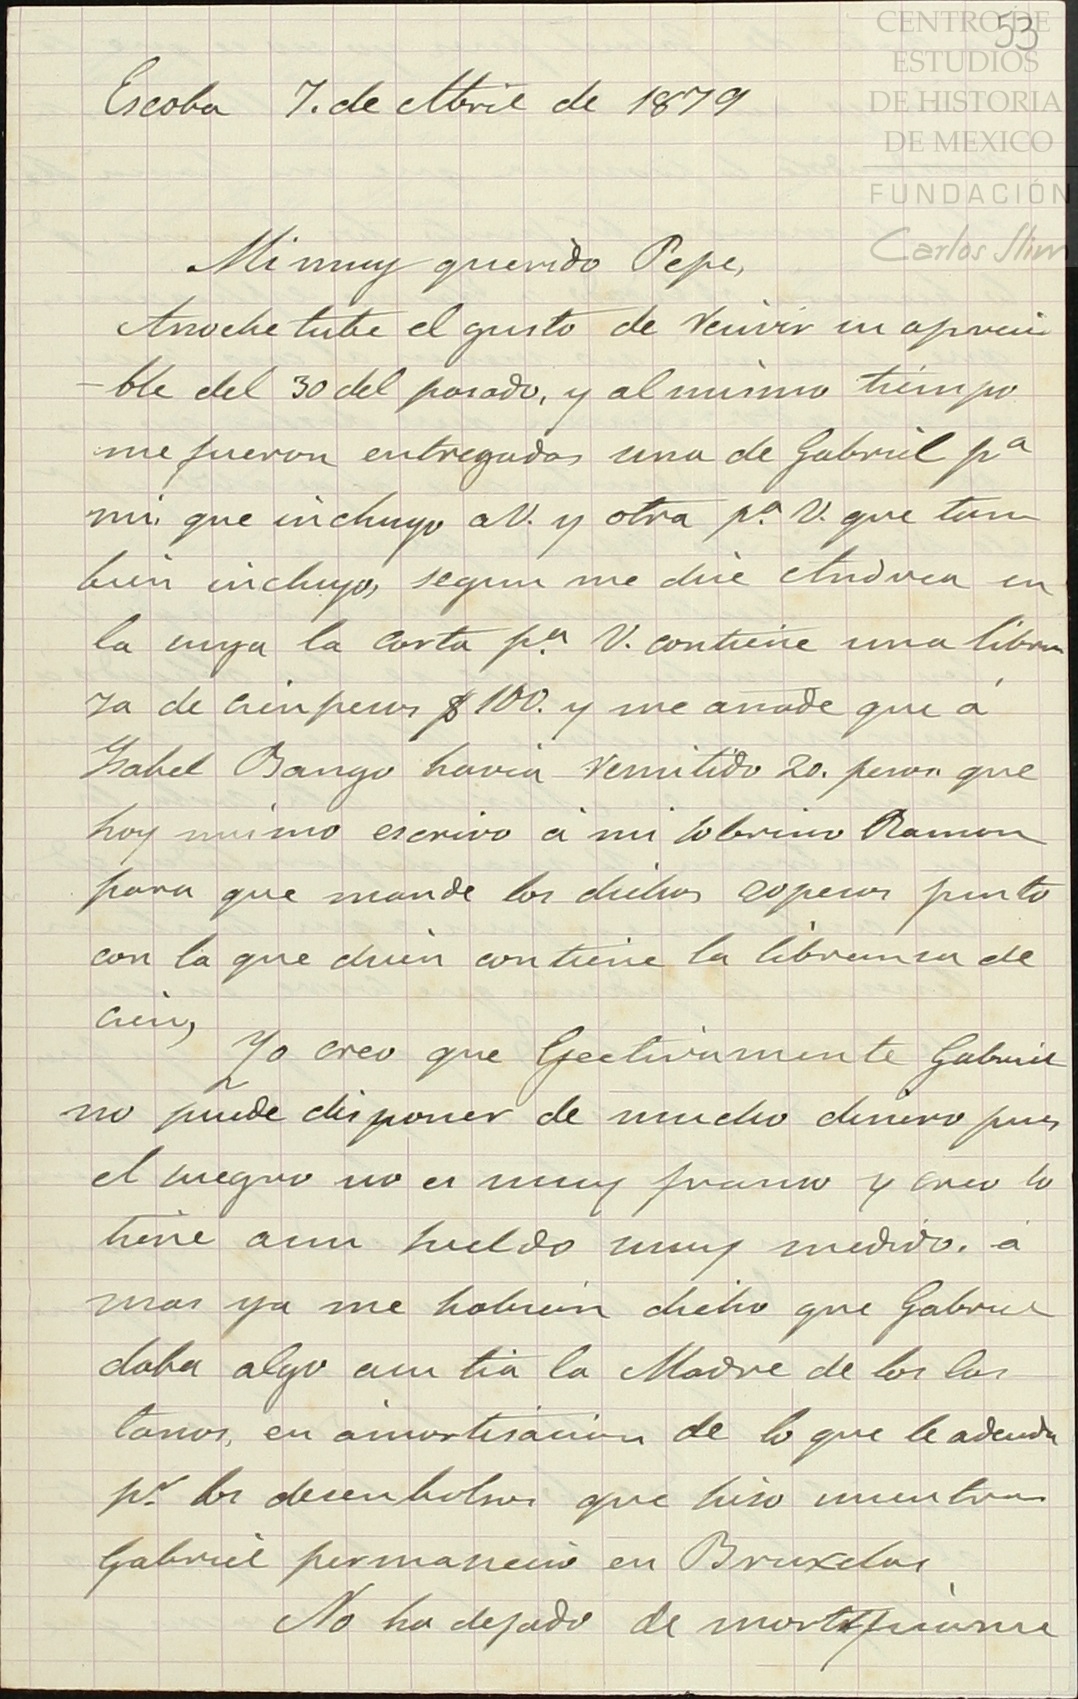 53
CENTRO DE
ESTUDIOS
DE HISTORIA
DE MEXICO
FUNDACIÓN
Carlos Slim
Escoba 7. de Abril de 1879
Mi muy querido Pepe,
Anoche tube el gusto de recivir su apreci
-ble del 30 del pasado, y al mismo tiempo
me fueron entregadas una de Gabriel pª
mi, que incluyo a V. y otra p.ª V. que tam
bien incluyo, segun me dice Andrea en
la suya la carta p.ª V. contiene una libran
za de cien pesos $ 100. y me añade que á
Ysabel Bango havia remitido 20. pesos que
hoy mismo escrivo á mi sobrino Ramon
para que mande los dichos 20 pesos junto
con la que dicen contiene la libransa de
cien,
Yo creo que efectivamente Gabriel
no puede disponer de mucho dinero pues
el suegro no es muy franco y creo lo
tiene aun sueldo muy medido. á
mas ya me habian dicho que Gabriel
daba algo aun tia la Madre de los Cas
tanos, en amortisacion de lo que le adeuda
pr. los desembolsos que hiso mientras
Gabriel permanecio en Bruxelas
No ha dejado de mortificarme